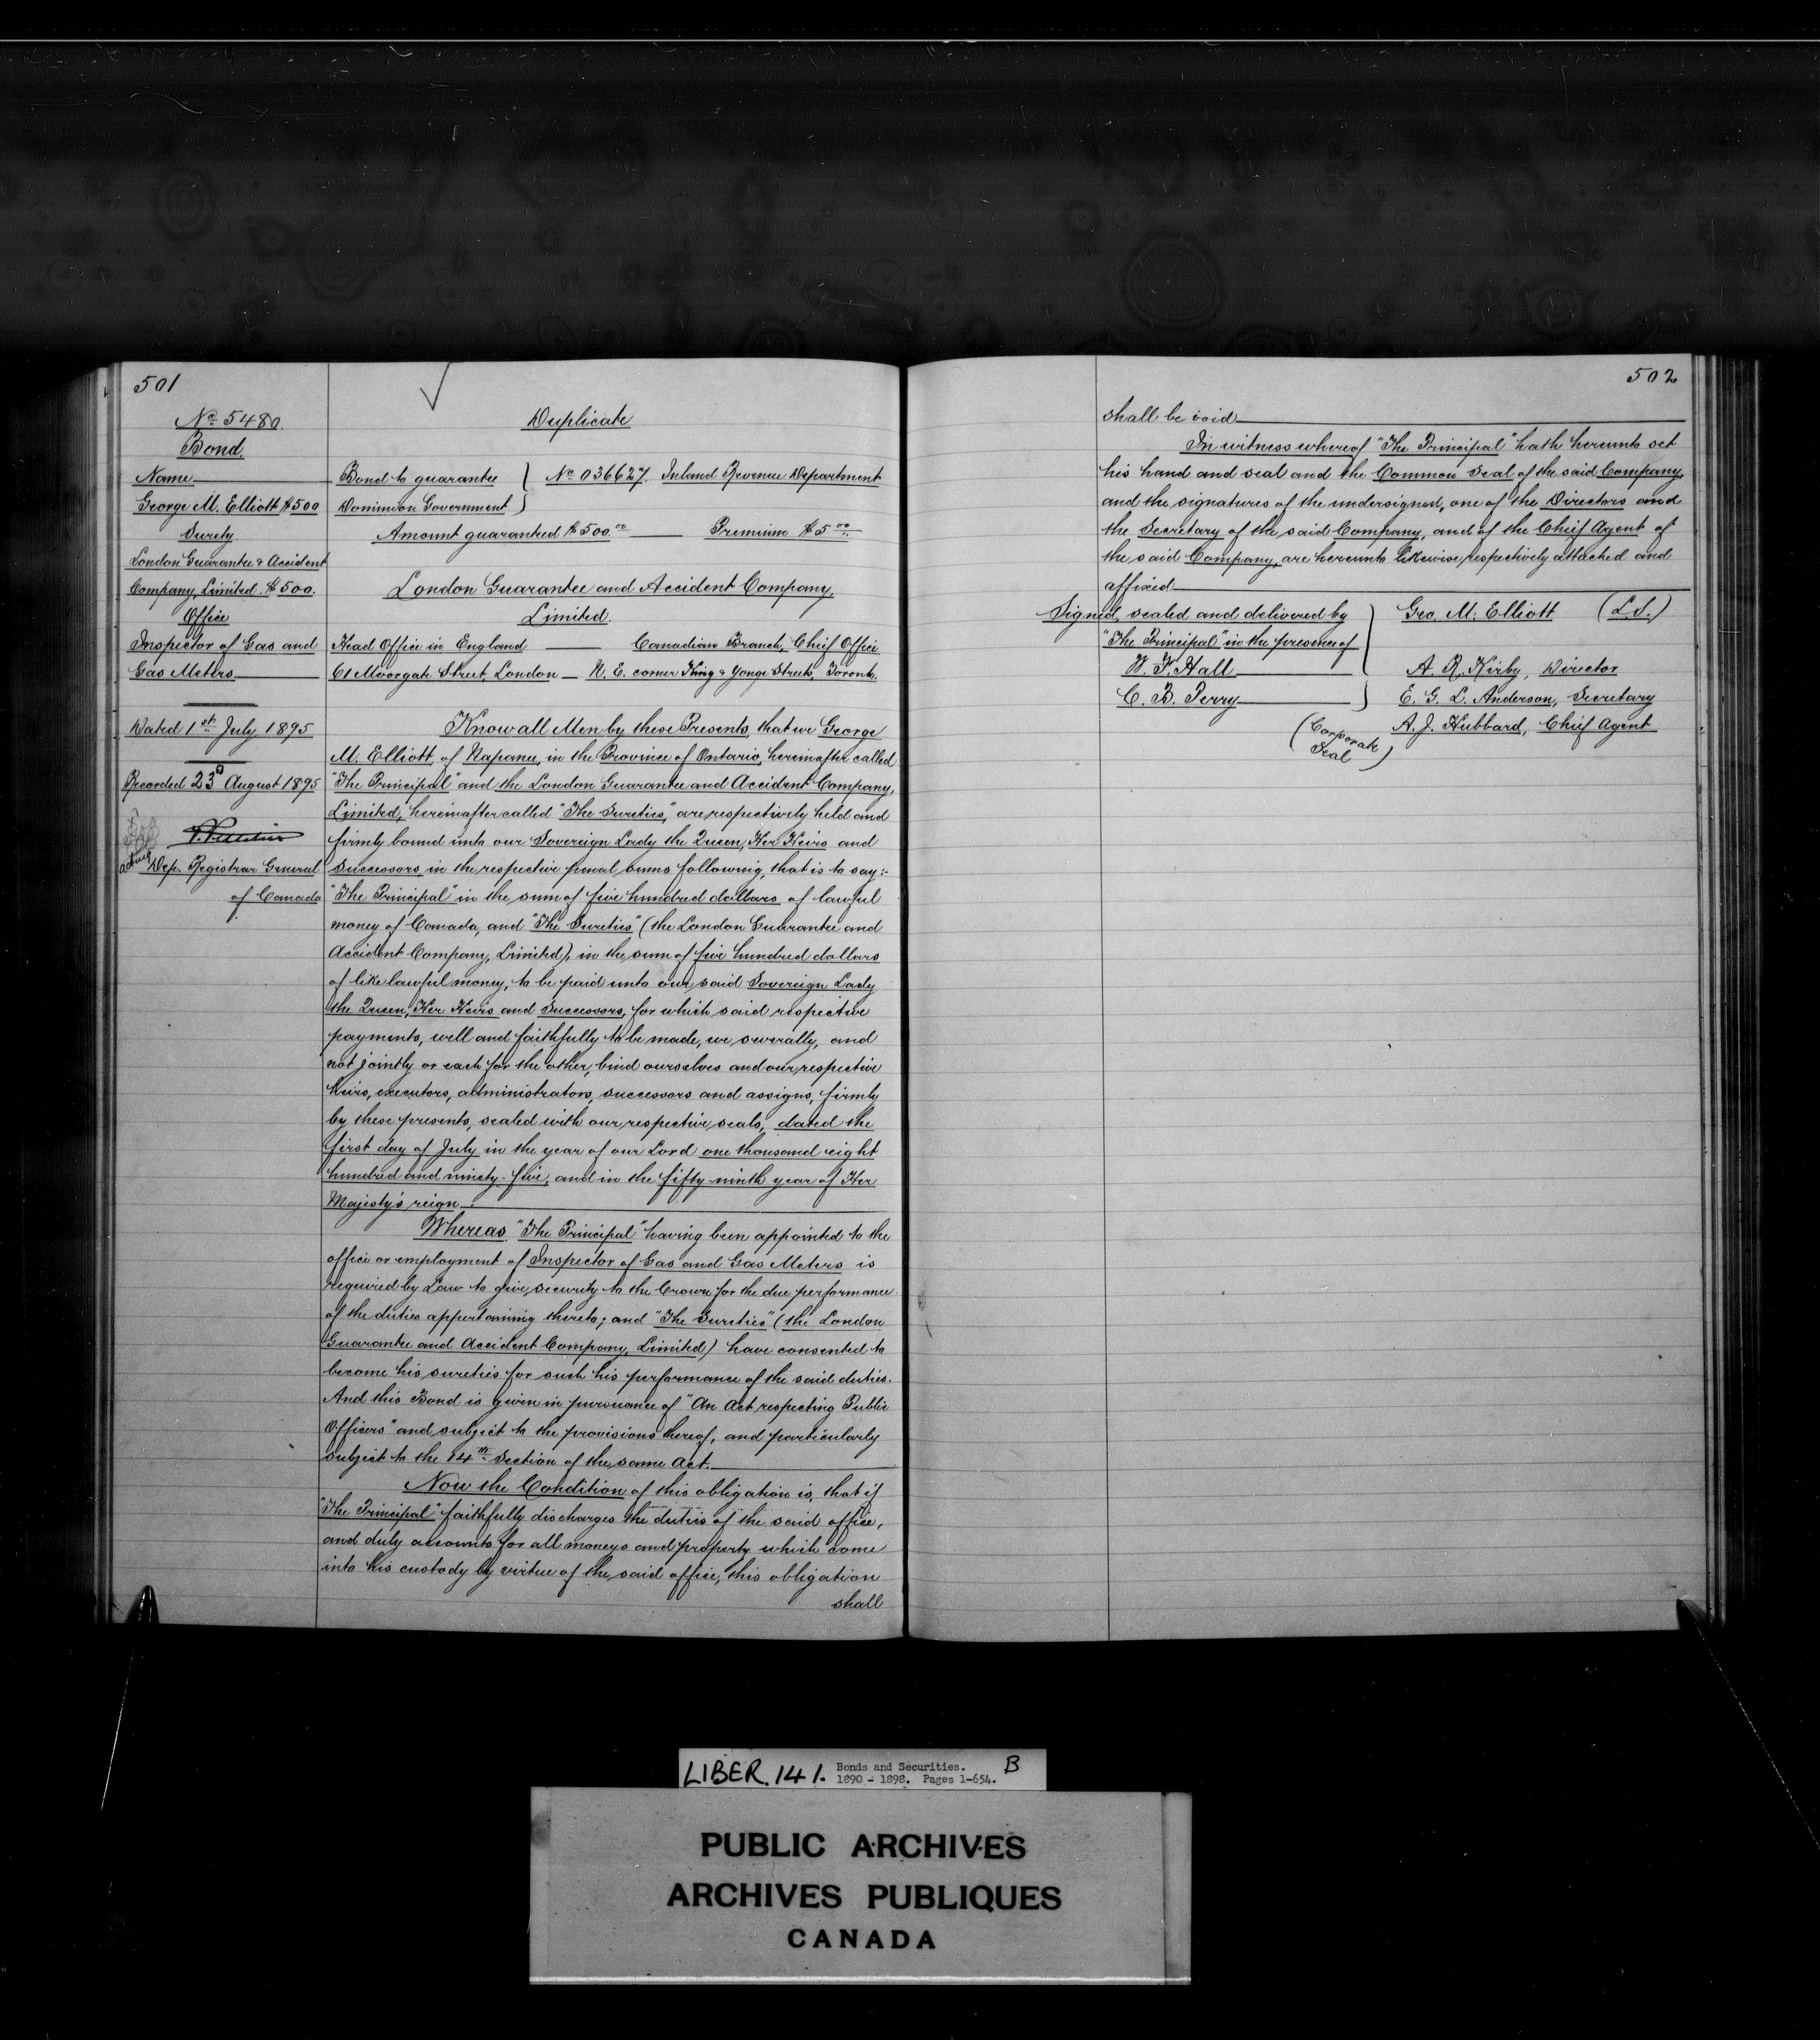 501
No 5480.
Bond.
Name
George M. Elliott $500
Surety
London Guarantee & Accident
Company, Limited. $500.
Office
Inspector of Gas and
Gas Meters.
Dated 1st July 1895
Recorded 23d August 1895
acting Dep. Registrar General
of Canada
Duplicate
Bond to guarantee } No 036627. Inland Revenue Department
Dominion Government
Amount guaranteed $500.00 Premium $5.00
London Guarantee and Accident Company,
Limited.
Head Office in England — Canadian Branch, Chief Office
61 Moorgate Street, London — N. E. corner King & Yonge Streets, Toronto.
Know all Men by these Presents, that we George
M. Elliott, of Napanee, in the Province of Ontario, hereinafter called
"The Principal" and the London Guarantee and Accident Company,
Limited, hereinafter called "The Sureties," are respectively held and
firmly bound unto our Sovereign Lady the Queen, Her Heirs and
Successors, in the respective penal sums following, that is to say:-
"The Principal" in the sum of five hundred dollars of lawful
money of Canada, and "The Sureties" (the London Guarantee and
Accident Company, Limited), in the sum of five hundred dollars
of like lawful money, to be paid unto our said Sovereign Lady
the Queen, Her Heirs and Successors, for which said respective
payments, well and faithfully to be made, we severally, and
not jointly or each for the other, bind ourselves and our respective
heirs, executors, administrators, successors and assigns, firmly
by these presents, sealed with our respective seals, dated the
first day of July in the year of our Lord one thousand eight
hundred and ninety-five, and in the fifty-ninth year of Her
Majesty's reign.
Whereas "The Principal" having been appointed to the
office or employment of Inspector of Gas and Gas Meters is
required by Law to give security to the Crown for the due performance
of the duties appertaining thereto; and "The Sureties" (the London
Guarantee and Accident Company, Limited) have consented to
become his sureties for such his performance of the said duties.
And this Bond is given in pursuance of "An Act respecting Public
Officers" and subject to the provisions thereof, and particularly
subject to the 14th Section of the same Act.
Now the Condition of this obligation is, that if
"The Principal" faithfully discharges the duties of the said office,
and duly accounts for all moneys and property which come
into his custody by virtue of the said office, this obligation
shall
502
shall be void
In witness whereof "The Principal" hath hereunto set
his hand and seal and the Common Seal of the said Company,
and the signatures of the undersigned, one of the Directors and
the Secretary of the said Company, and of the Chief Agent of
the said Company, are hereunto likewise respectively attached and
affixed
Signed, sealed and delivered by } Geo. M. Elliott (L.S.)
"The Principal" in the presence of
W. F. Hall A. R. Kirby, Director
C. B. Perry E. G. L. Anderson, Secretary
(Corporate Seal) A. J. Hubbard, Chief Agent
LIBER. 141. Bonds and Securities. B
1890 - 1898. Pages 1-654.
PUBLIC ARCHIVES
ARCHIVES PUBLIQUES
CANADA